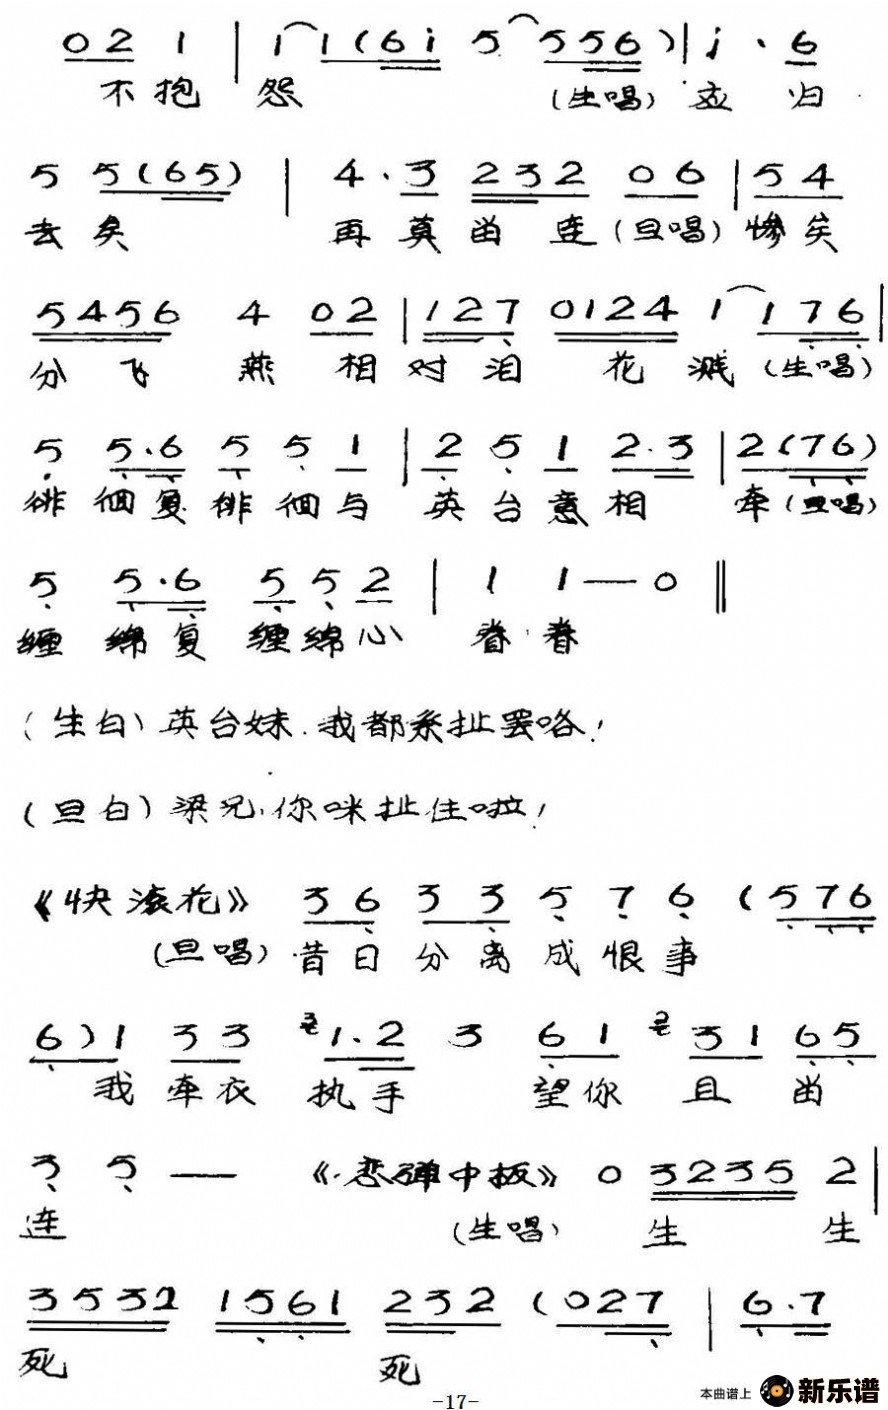 0 2 1 | 1 1 (6 i 5 5 5 5 6) | i · 6
不抱 怨 (生唱) 应 归
5 5 (6 5) | 4 · 3 2 3 2 0 6 | 5 4
去矣 再莫留连 (旦唱) 惨矣
5 4 5 6 4 0 2 | 1 2 7 0 1 2 4 1 1 7 6 |
分飞 燕 相对泪 花 溅 (生唱)
5 5 · 6 5 5 1 | 2 5 1 2 · 3 | 2 (7 6)
徘徊复徘徊与 英台意相 牵 (旦唱)
5 5 · 6 5 5 2 | 1 1 — 0 ‖
缠 绵复 缠绵心 眷·眷
(生白) 英台妹.我都系扯罢咯!
(旦白) 梁兄.你咪扯住啦!
《快滚花》 3 6 3 3 5 7 6 (5 7 6
(旦唱) 昔日分离成恨事
6) 1 3 3 1 · 2 3 6 1 3 1 6 5
我牵衣 执手 望你 且 留
3 5 — 《恋弹中板》 0 3 2 3 5 2 |
连 (生唱) 生 生
3 5 3 2 1 5 6 1 2 3 2 (0 2 7 | 6 · 7
死 死
本曲谱上 新乐谱
-17-